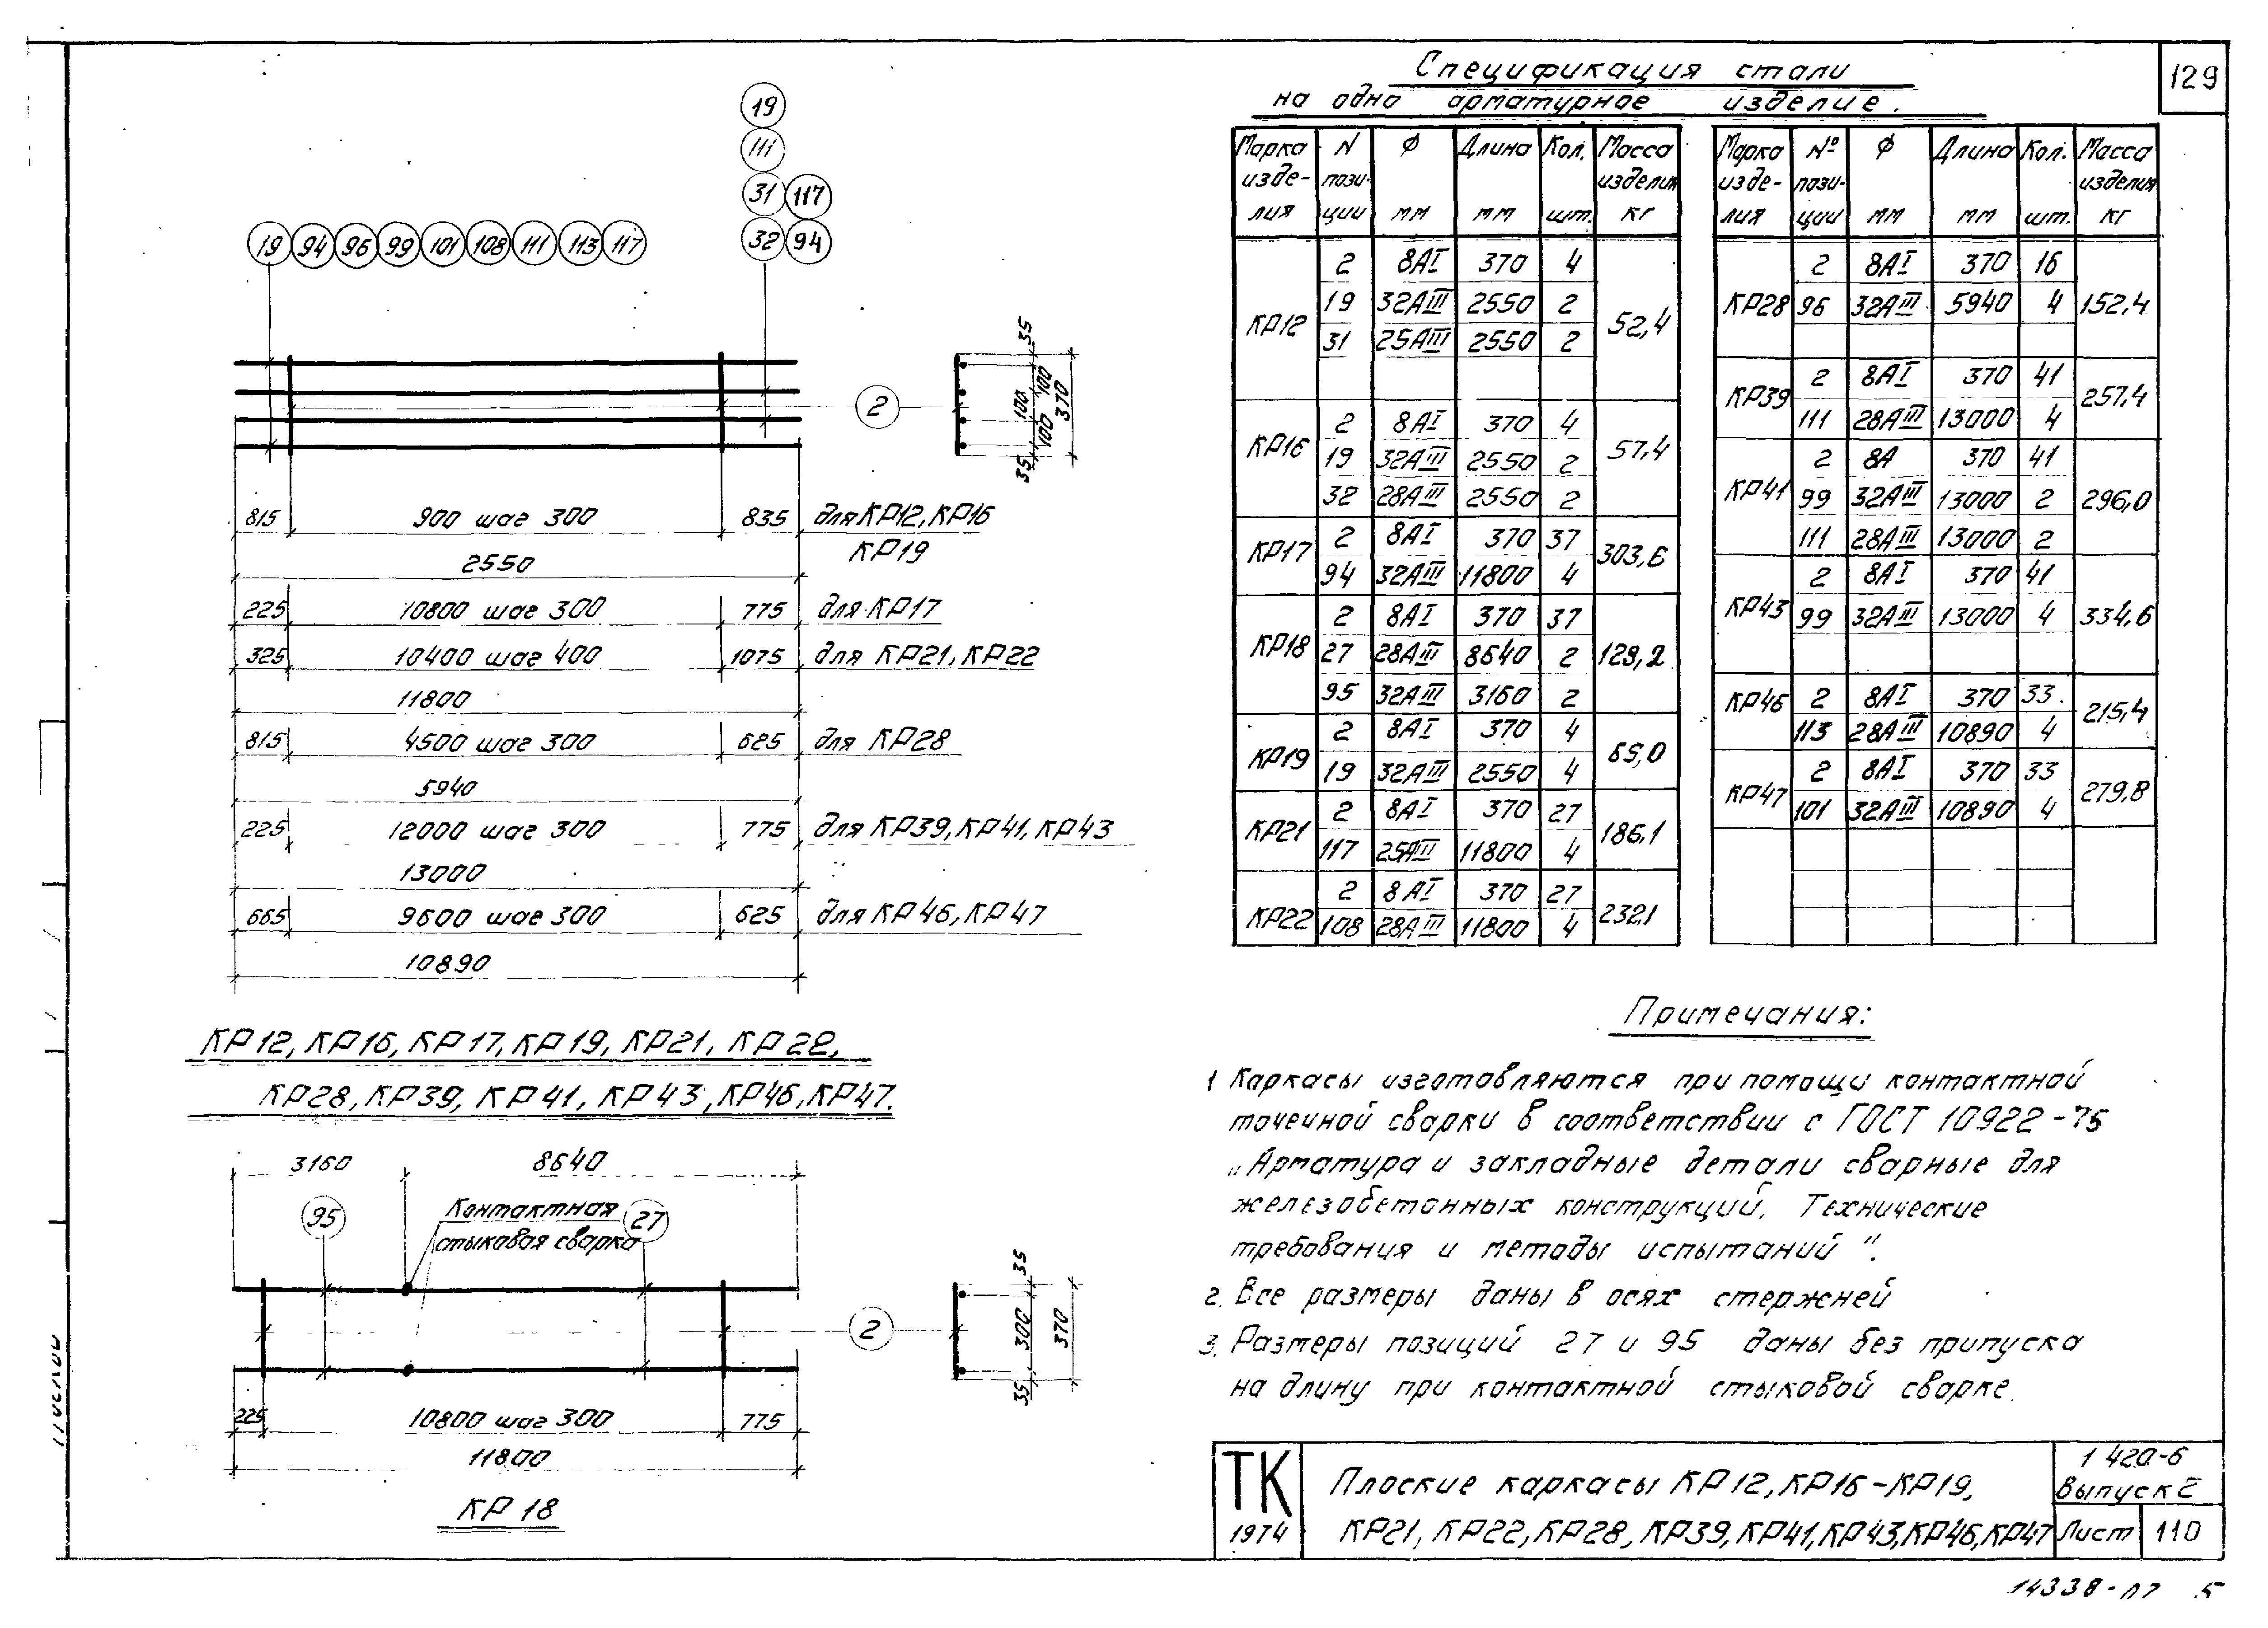 129
19
111
31 117
32 94
19 94 96 99 101 108 111 113 117
2
35
100
100
100
35
370
815 900 шаг 300 835 для КР12, КР16
КР19
2550
225 10800 шаг 300 775 для КР17
325 10400 шаг 400 1075 для КР21, КР22
11800
815 4500 шаг 300 625 для КР28
5940
225 12000 шаг 300 775 для КР39, КР41, КР43
13000
665 9600 шаг 300 625 для КР46, КР47
10890
КР12, КР16, КР17, КР19, КР21, КР22,
КР28, КР39, КР41, КР43, КР46, КР47.
3160 8640
95
Контактная
стыковая сварка
27
2
35
300
35
370
225 10800 шаг 300 775
11800
КР 18
Спецификация стали
на одно арматурное изделие.
Марка N Ф Длина Кол. Масса
изде- пози- изделия
лия ции мм мм шт. кг
2 8АI 370 4
КР12 19 32АIII 2550 2 52,4
31 25АIII 2550 2
2 8АI 370 4
КР16 19 32АIII 2550 2 57,4
32 28АIII 2550 2
КР17 2 8АI 370 37 303,6
94 32АIII 11800 4
2 8АI 370 37
КР18 27 28АIII 8640 2 129,2
95 32АIII 3160 2
2 8АI 370 4
КР19 19 32АIII 2550 4 65,0
КР21 2 8АI 370 27 186,1
117 25АIII 11800 4
2 8АI 370 27
КР22 108 28АIII 11800 4 232,1
Марка № Ф Длина Кол. Масса
изде- пози- изделия
лия ции мм мм шт. кг
2 8АI 370 16
КР28 96 32АIII 5940 4 152,4
КР39 2 8АI 370 41 257,4
111 28АIII 13000 4
2 8А 370 41
КР41 99 32АIII 13000 2 296,0
111 28АIII 13000 2
2 8АI 370 41
КР43 99 32АIII 13000 4 334,6
КР46 2 8АI 370 33 215,4
113 28АIII 10890 4
КР47 2 8АI 370 33 279,8
101 32АIII 10890 4
Примечания:
1 Каркасы изготовляются при помощи контактной
точечной сварки в соответствии с ГОСТ 10922-75
„Арматура и закладные детали сварные для
железобетонных конструкций. Технические
требования и методы испытаний".
2. Все размеры даны в осях стержней
3. Размеры позиций 27 и 95 даны без припуска
на длину при контактной стыковой сварке.
ТК
1974
Плоские каркасы КР12, КР16-КР19,
КР21, КР22, КР28, КР39, КР41, КР43, КР46, КР47
1 420-6
Выпуск 2
Лист 110
14338-07 5